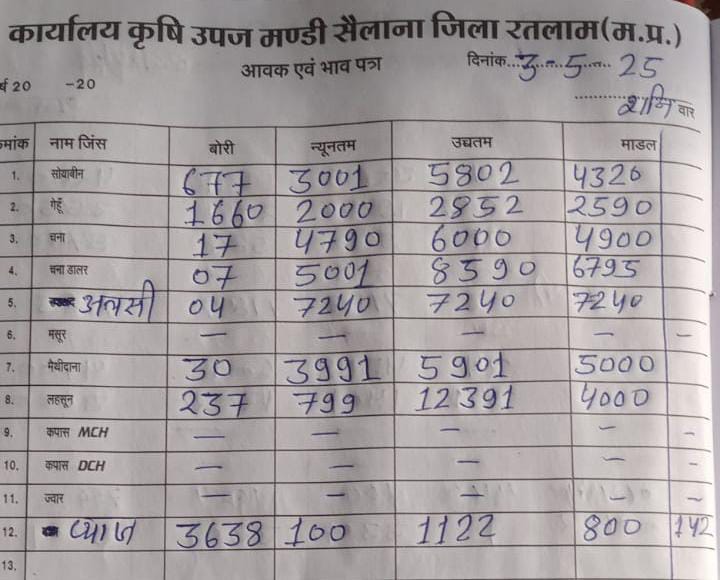 कार्यालय कृषि उपज मण्डी सैलाना जिला रतलाम(म.प्र.)
आवक एवं भाव पत्र दिनांक...3-5...25
र्ष 20 -20 शनि वार
क्रमांक नाम जिंस बोरी न्यूनतम उच्चतम माडल
1. सोयाबीन 677 3001 5802 4326
2. गेहूँ 1660 2000 2852 2590
3. चना 17 4790 6000 4900
4. चना डालर 07 5001 8590 6795
5. अलसी 04 7240 7240 7240
6. मसूर — — — — —
7. मैथीदाना 30 3991 5901 5000
8. लहसून 237 799 12391 4000
9. कपास MCH — — — — —
10. कपास DCH — — — — —
11. ज्वार — — — — —
12. प्याज 3638 100 1122 800 142
13.